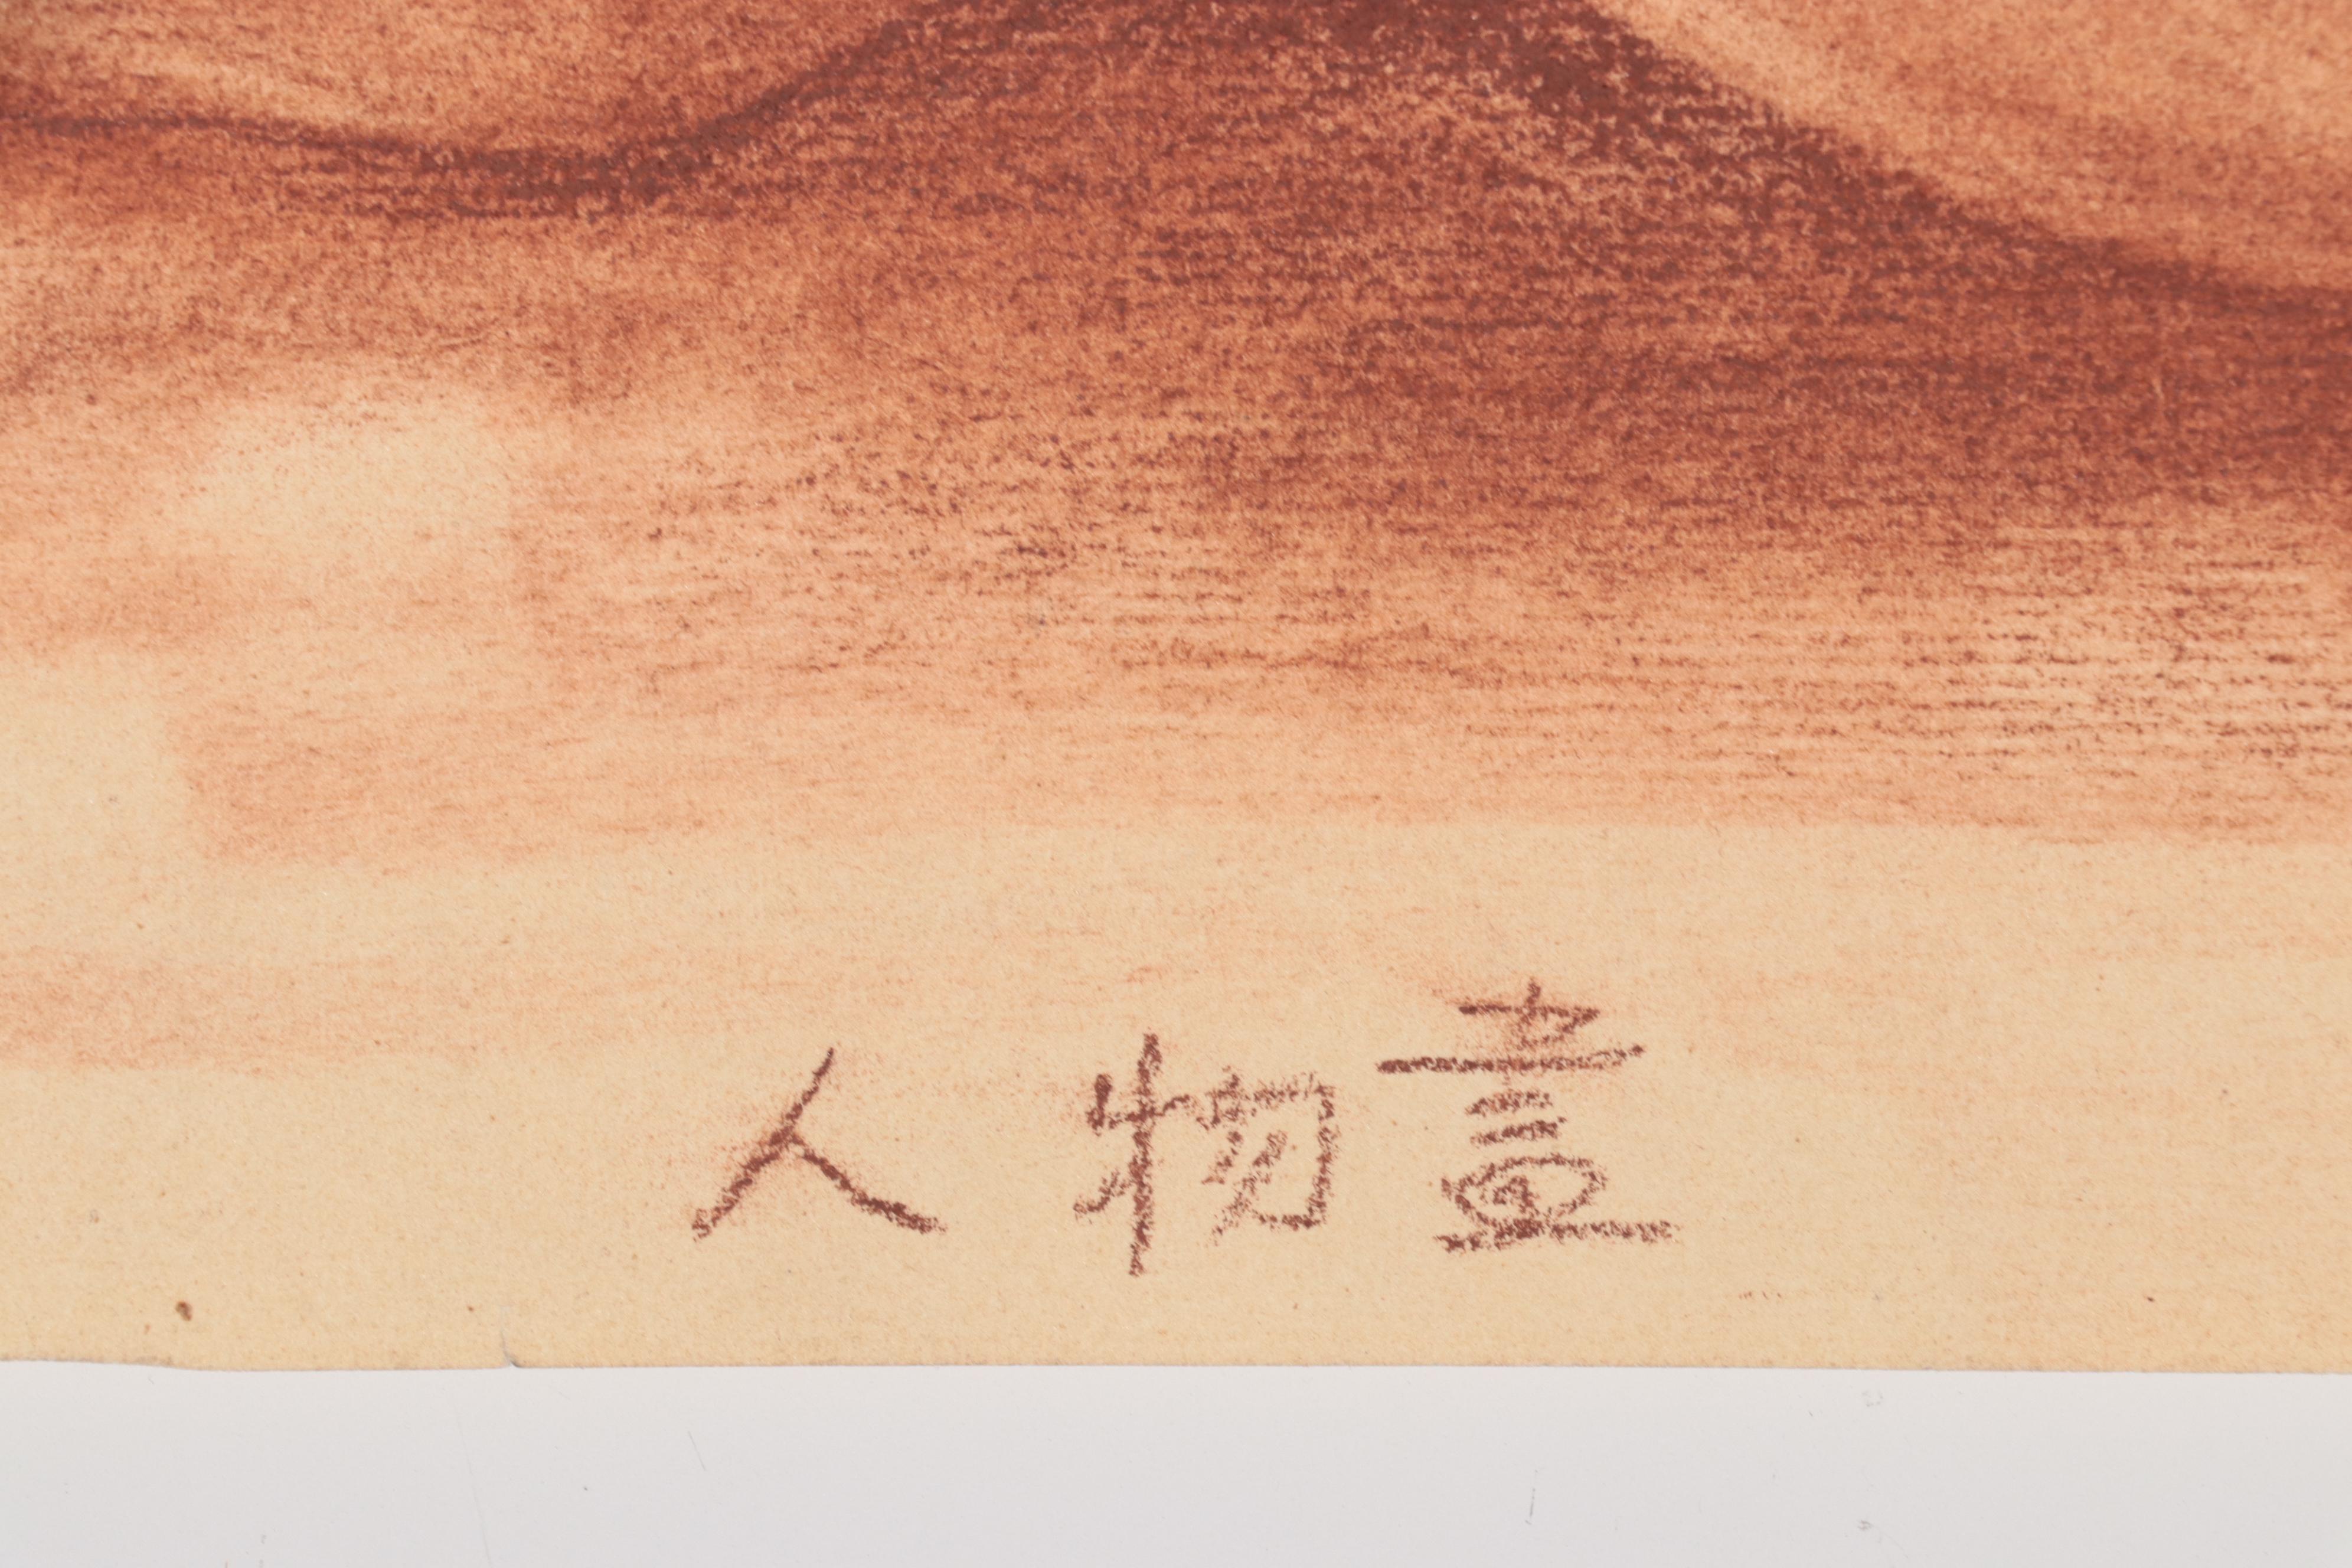 人物畫